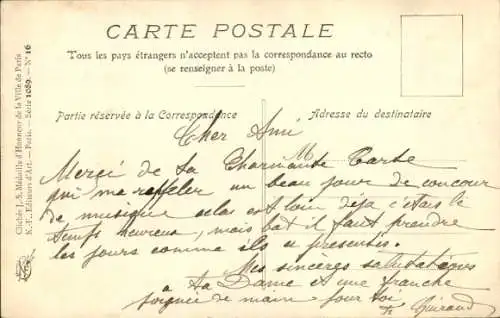 CARTE POSTALE
Tous les pays étrangers n'acceptent pas la correspondance au recto
(se renseigner à la poste)
Partie réservée à la Correspondance
Adresse du destinataire
Clichés J.-S. Médaille d'Honneur de la Ville de Paris
Editeurs d'Art. — Paris. — Série 1089. — N° 16
Cher Ami
M
Merci de ta Charmante Carte
qui me rappeler un beau jour de concour
de musique celas est loin deja c'etais le
temps heureux, mais bat il faut prendre
les jours comme ils ce presentes.
Mes sincères salutations
a ta Dame et une franche
poignée de main pour toi